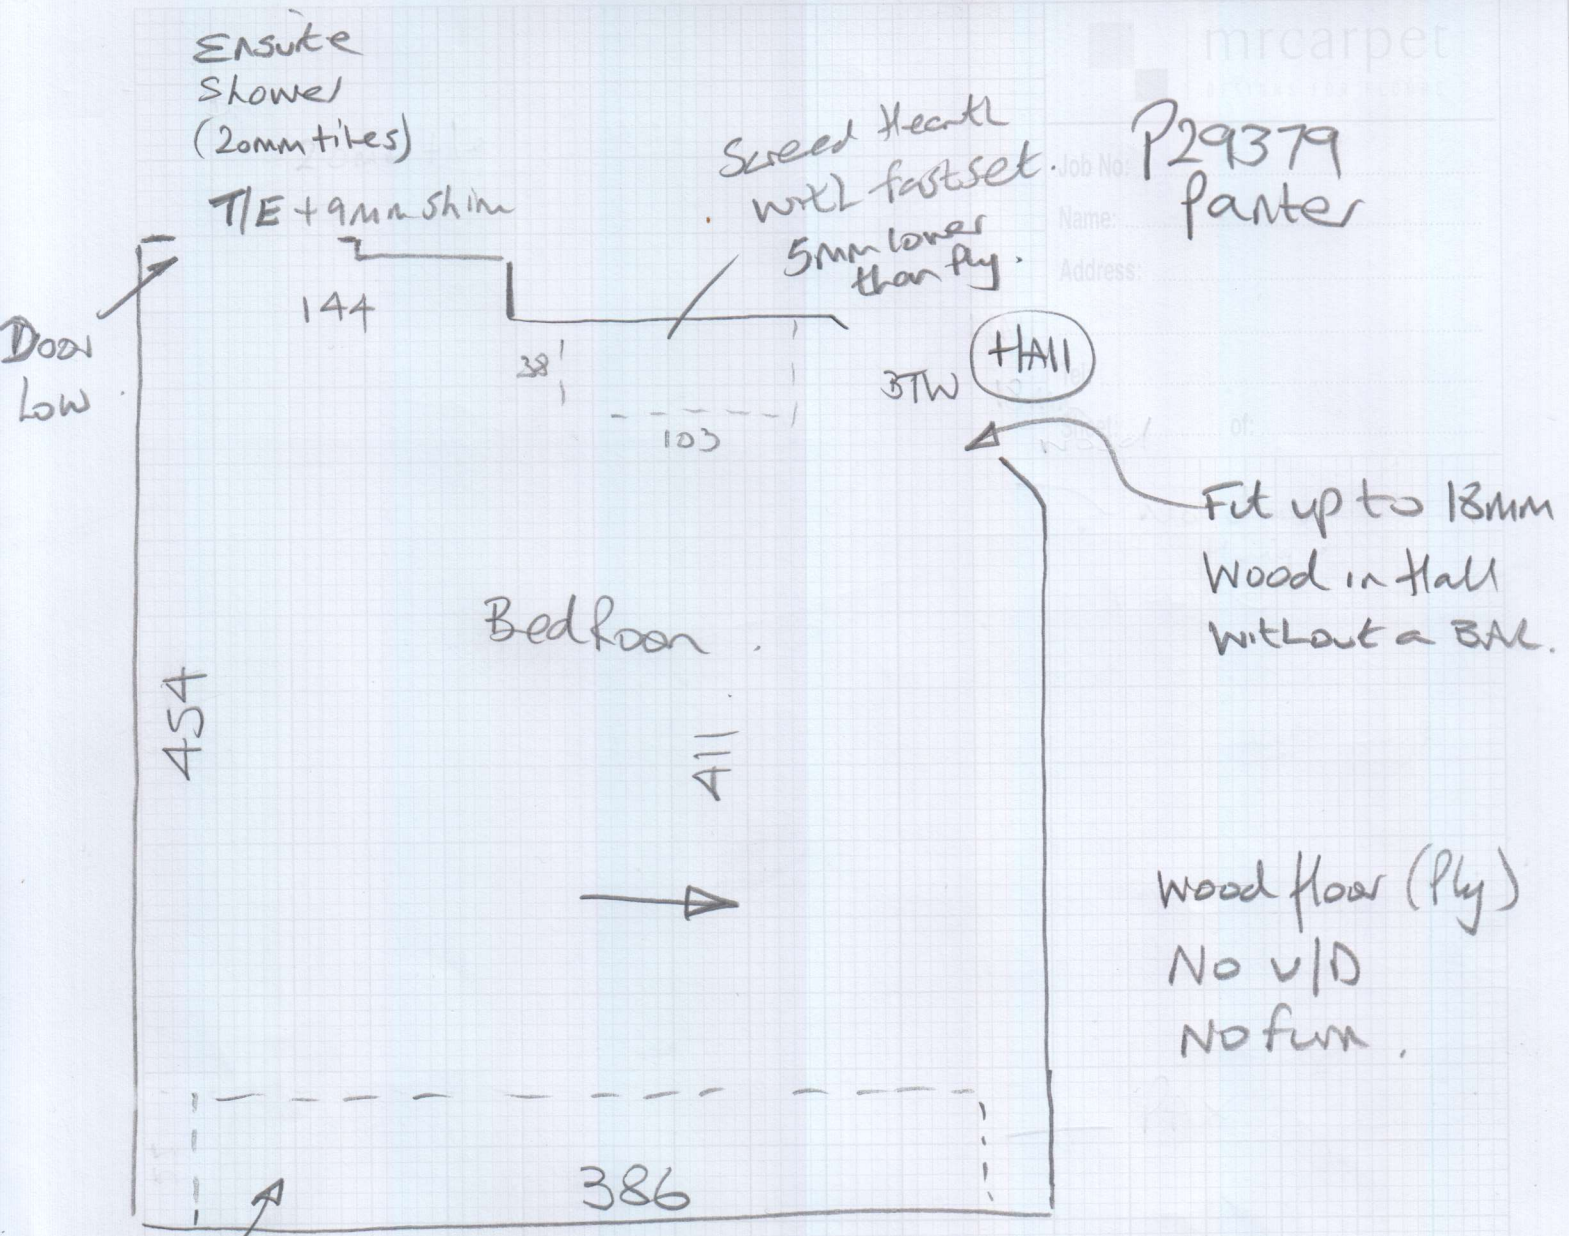 Ensuite
Shower
(20mm tiles)
T/E + 9mm Shim
Screed Hearth
with fastset.
5mm lower
than Ply.
mrcarpet
DESIGNS FOR FLOORS
Job No: P29379
Name: Panter
Address:
Door
Low
144
38
103
BTW
HAll
of:
Fit up to 18mm
Wood in Hall
without a BAR.
BedRoom
454
411
Wood floor (Ply)
No U/D
No furn.
386